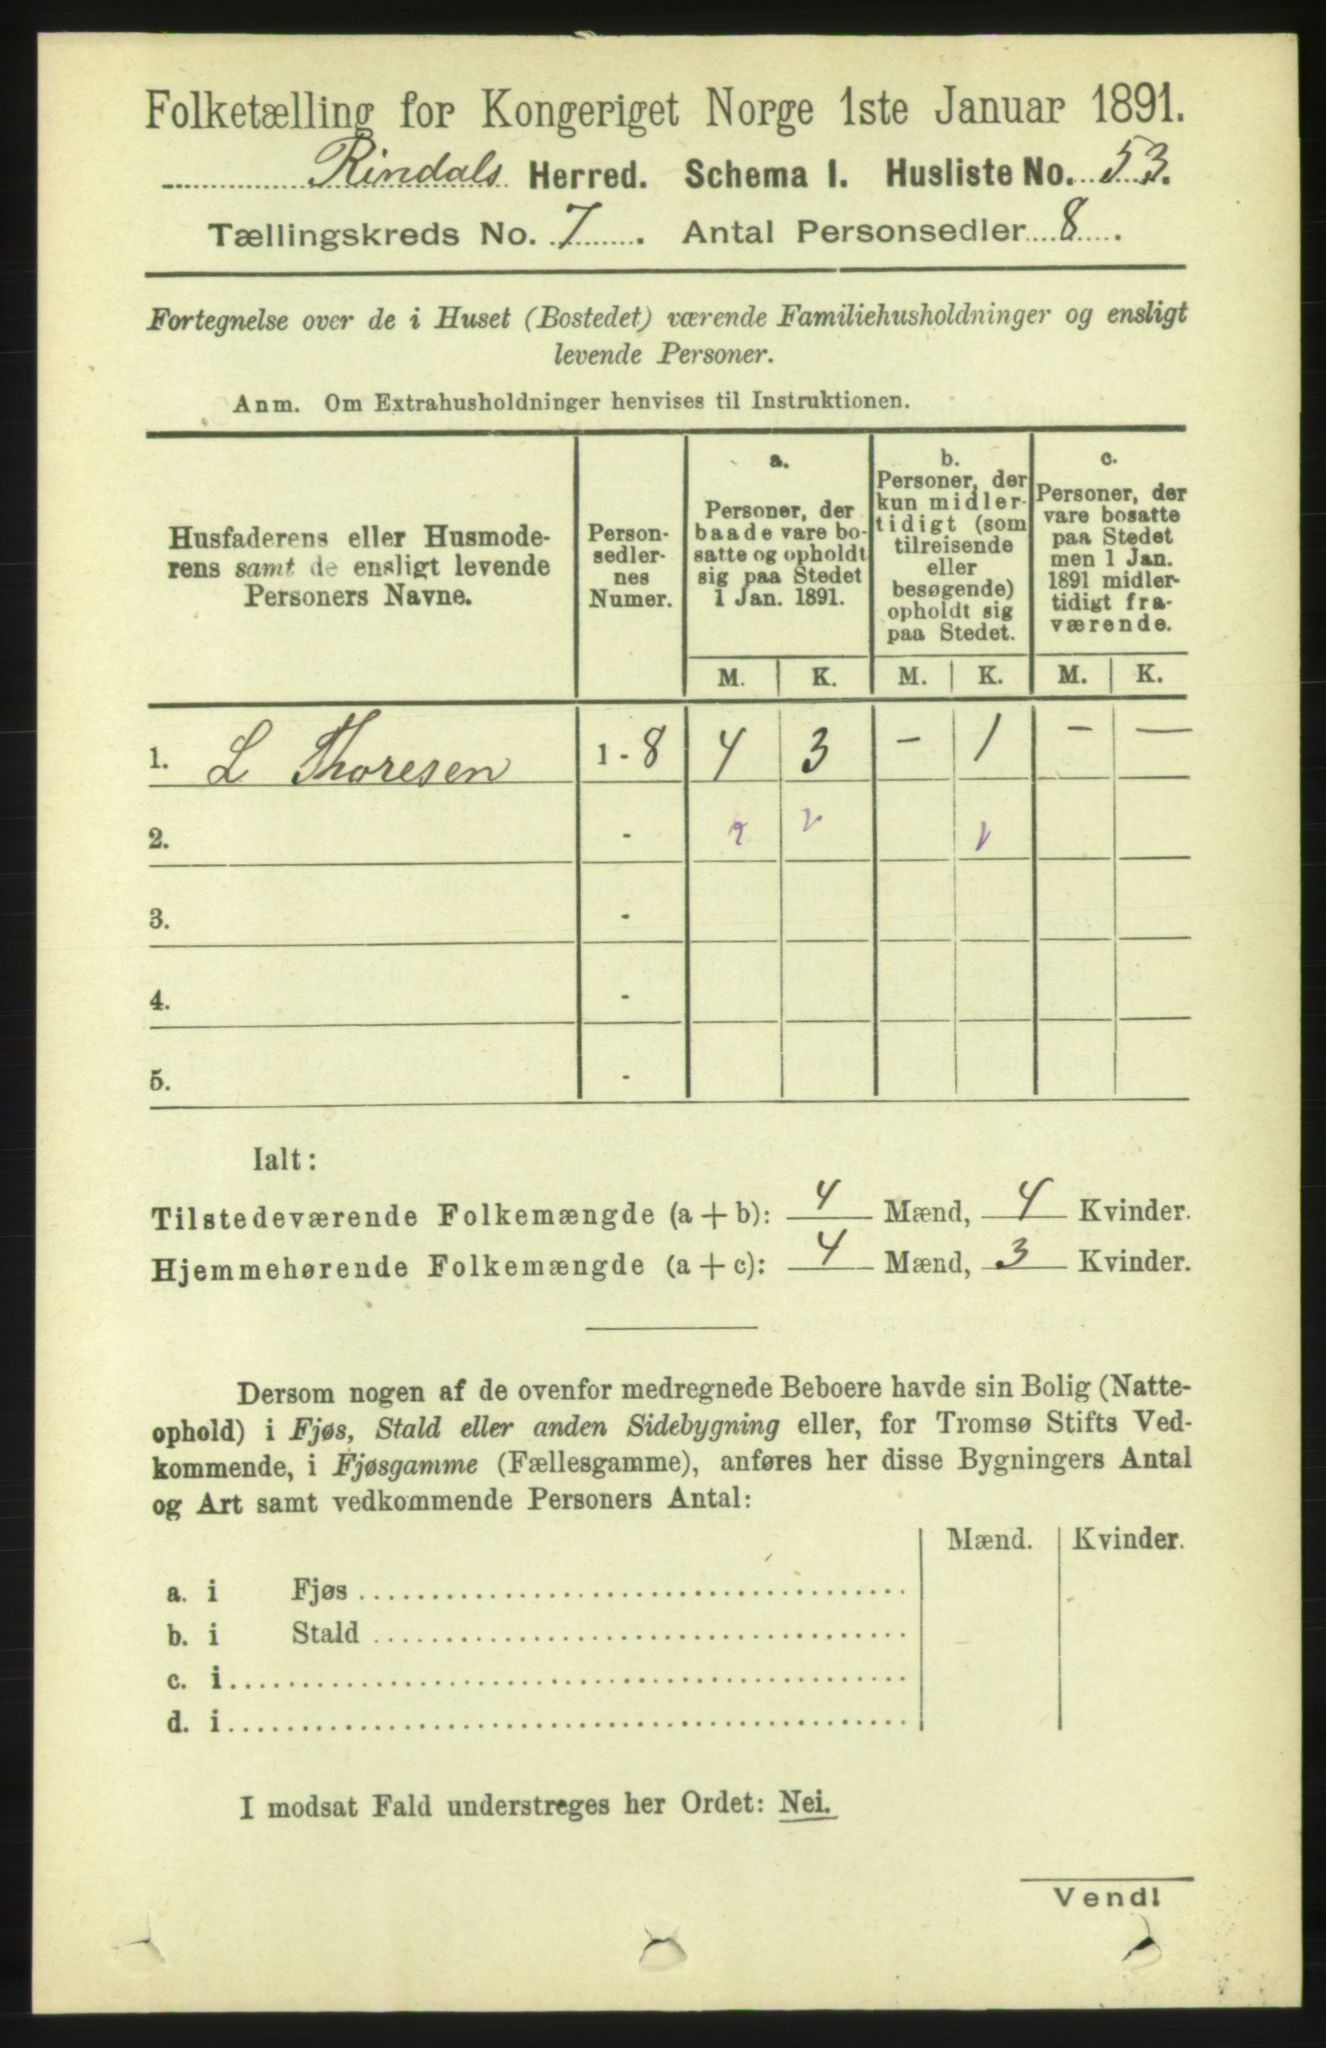 Folketælling for Kongeriget Norge 1ste Januar 1891.
Rindals Herred. Schema I. Husliste No. 53.
Tællingskreds No. 7. Antal Personsedler 8.
Fortegnelse over de i Huset (Bostedet) værende Familiehusholdninger og ensligt
levende Personer.
Anm. Om Extrahusholdninger henvises til Instruktionen.
Husfaderens eller Husmode-
rens samt de ensligt levende
Personers Navne.
Person-
sedler-
nes
Numer.
a.
Personer, der
baade vare bo-
satte og opholdt
sig paa Stedet
1 Jan. 1891.
b.
Personer, der
kun midler-
tidigt (som
tilreisende
eller
besøgende)
opholdt sig
paa Stedet.
c.
Personer, der
vare bosatte
paa Stedet
men 1 Jan.
1891 midler-
tidigt fra-
værende.
M. K. M. K. M. K.
1. L Thoresen 1 - 8 4 3 - 1 - -
2. -
3. -
4. -
5. -
Ialt:
Tilstedeværende Folkemængde (a + b): 4 Mænd, 4 Kvinder.
Hjemmehørende Folkemængde (a + c): 4 Mænd, 3 Kvinder.
Dersom nogen af de ovenfor medregnede Beboere havde sin Bolig (Natte-
ophold) i Fjøs, Stald eller anden Sidebygning eller, for Tromsø Stifts Ved-
kommende, i Fjøsgamme (Fællesgamme), anføres her disse Bygningers Antal
og Art samt vedkommende Personers Antal:
Mænd. Kvinder.
a. i Fjøs
b. i Stald
c. i
d. i
I modsat Fald understreges her Ordet: Nei.
Vend!